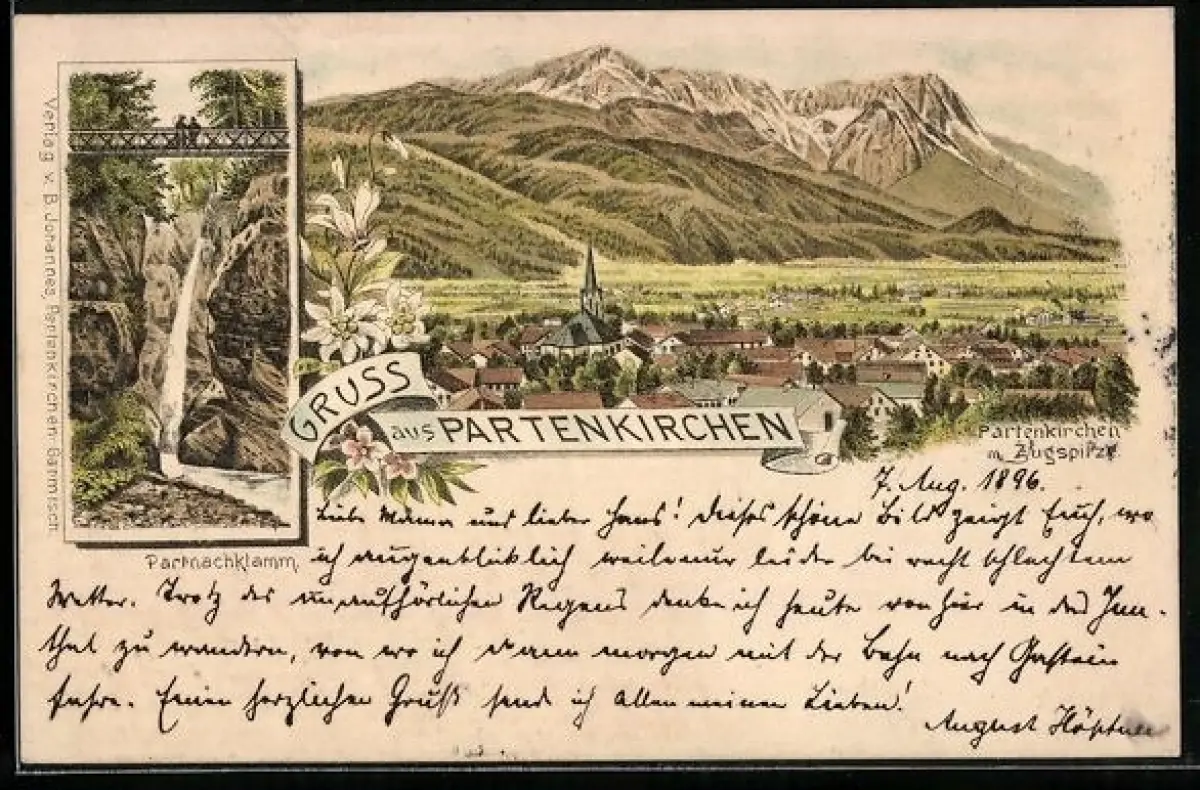 Verlag v. B. Johannes, Partenkirchen-Garmisch.
GRUSS
aus PARTENKIRCHEN
Partenkirchen
m. Zugspitze.
Partnachklamm.
7. Aug. 1896.
Liebe Mama und lieber Hans! Dieses schöne Bild zeigt Euch, wo
ich augenblicklich weile nur leider bei recht schlechtem
Wetter. Trotz des unaufhörlichen Regens denke ich heute von hier in das Inn-
thal zu wandern, von wo ich dann morgen mit der Bahn nach Gastein
fahre. Einen herzlichen Gruß sende ich Allen meinen Lieben!
August